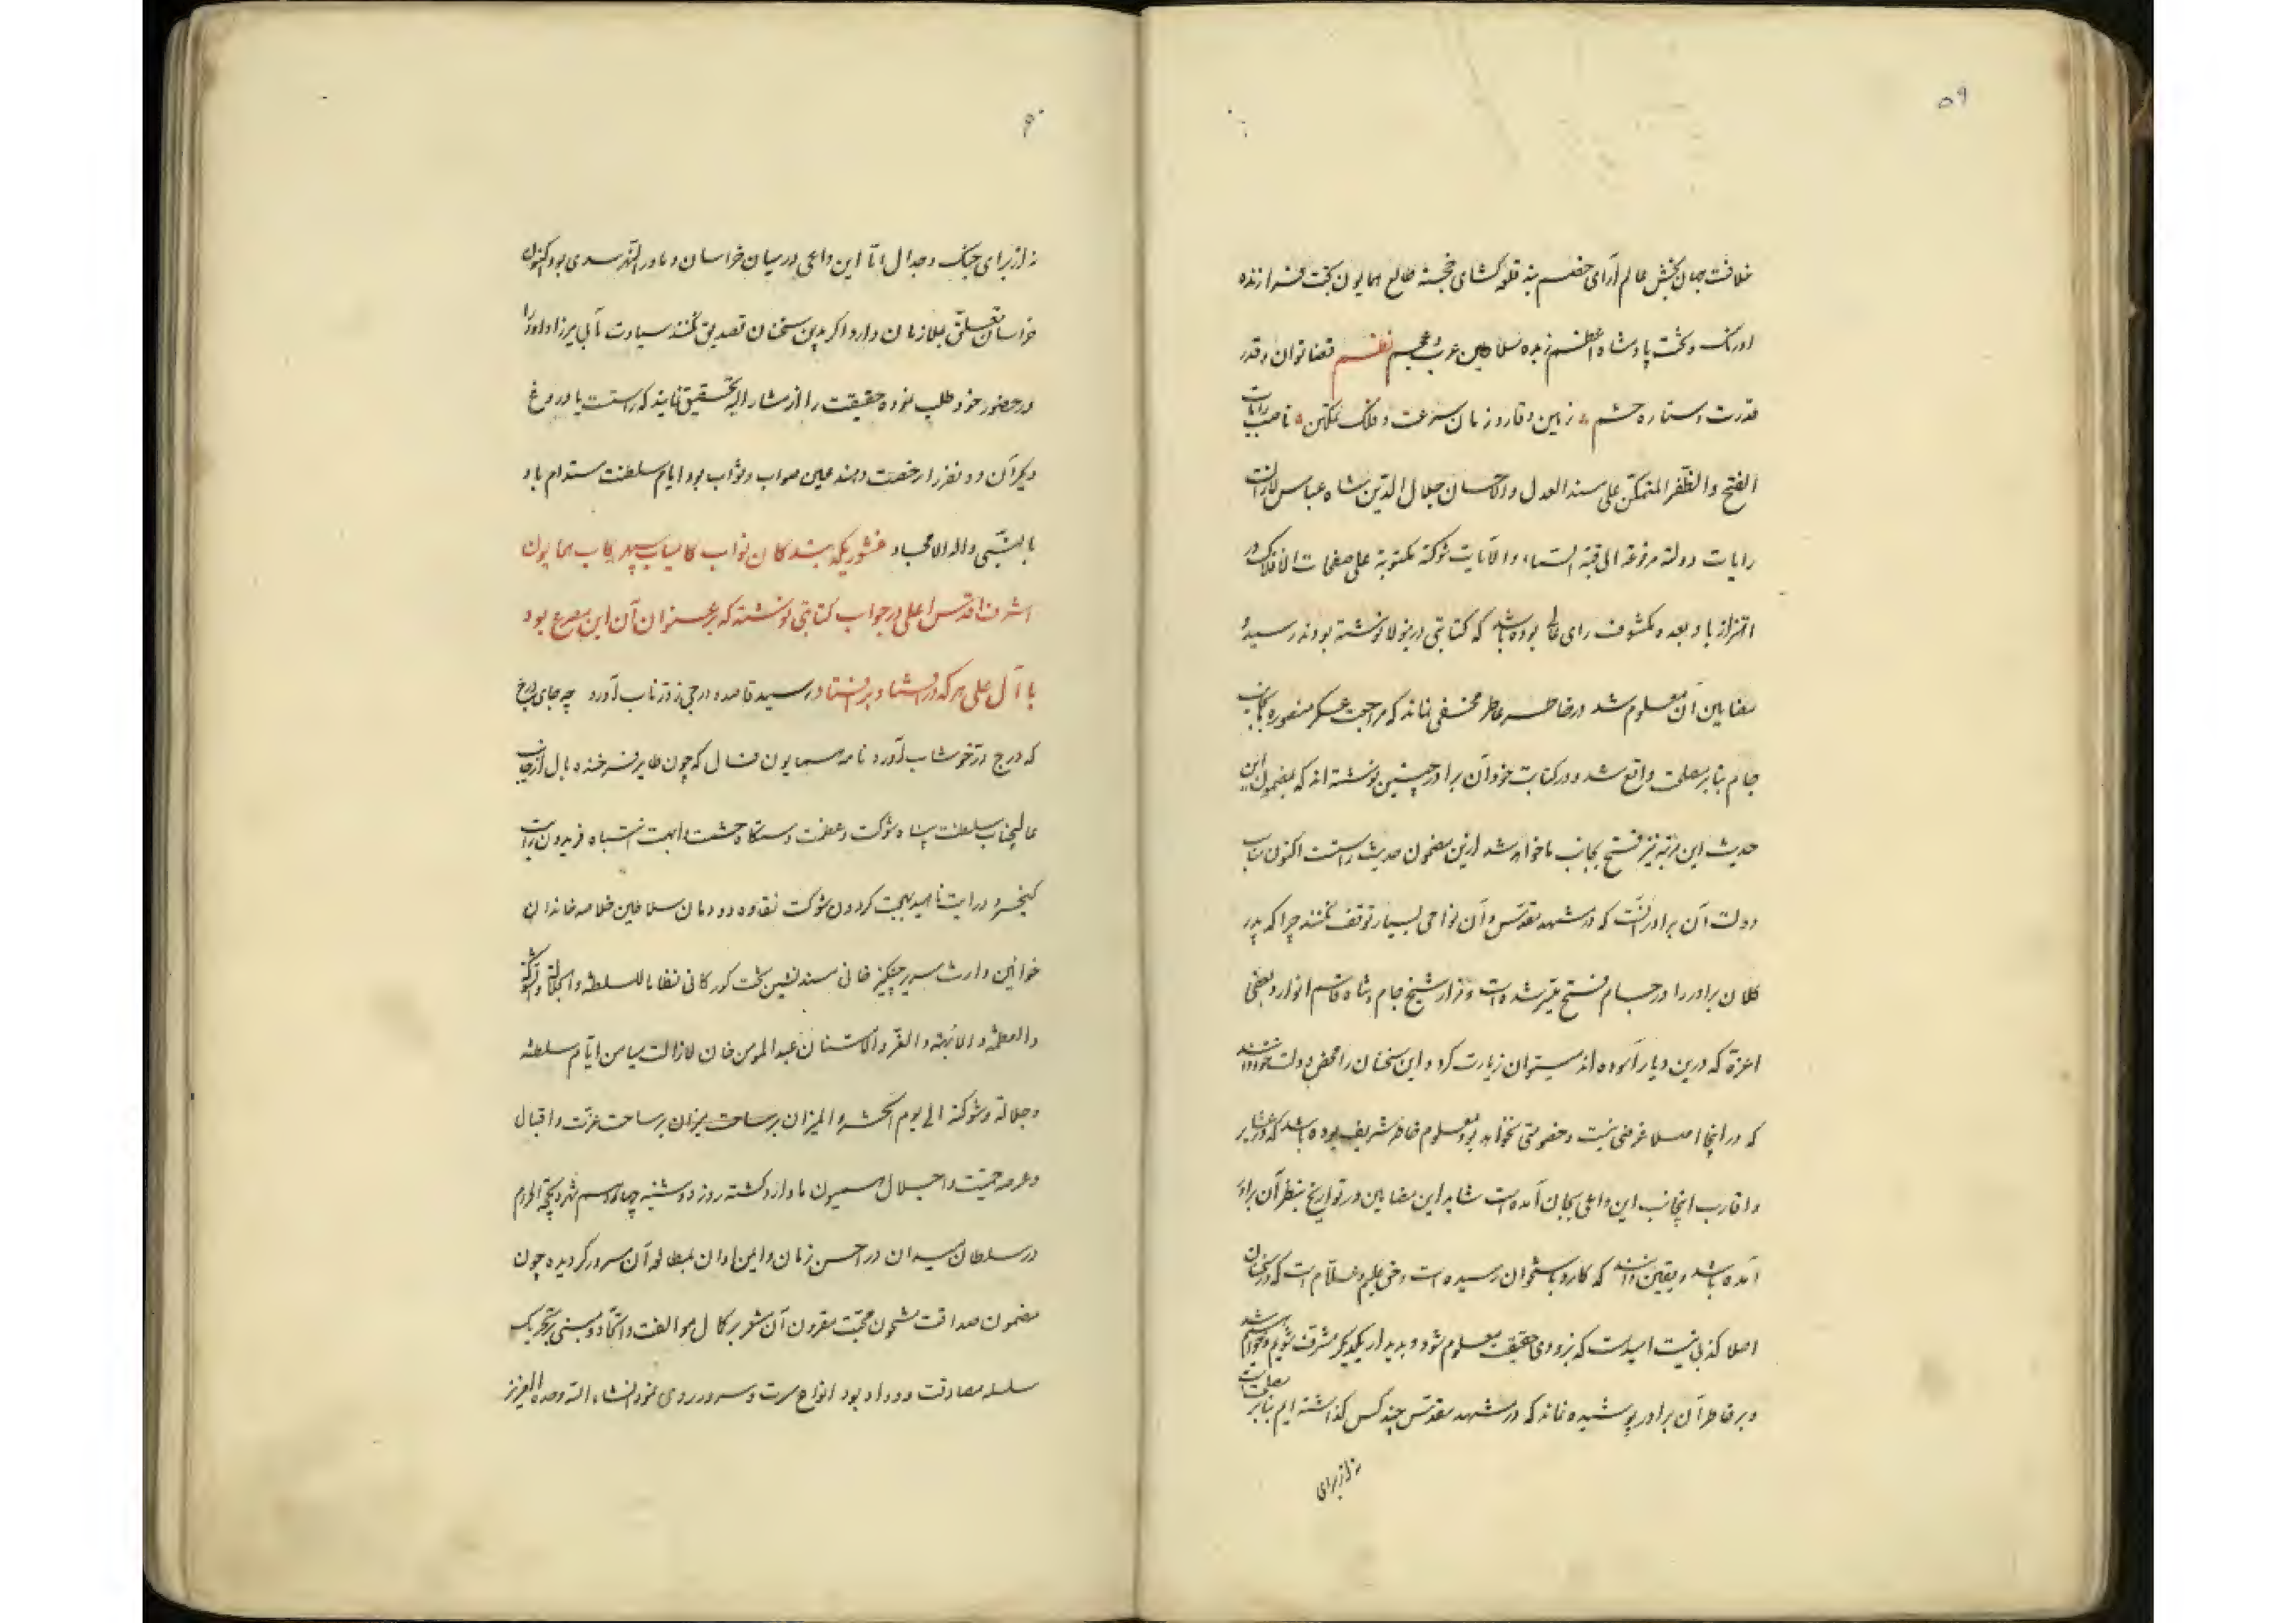 ۵۹
خلافت جهان بخش عالم آرای خصم بند قلعه کشای خجسته طالع همایون بخت فرازنده
اورنک و تخت پادشاه اعظم زبده سلاطین عرب و عجم نظم قضا توان و قدر
قدرت و ستاره حشم زمین وقار و زمان سرعت و فلک تمکین ناصب رایات
الفتح والظفر المتمکن علی مسند العدل والاحسان جلال الدین شاه عباس لازالت
رایات دولته مرفوعة الی قبة السماء و الآیات شوکته مکتوبة علی صفحات الافلاک در
اهتزاز باد بعده مکشوف رای عالی بوده باشد که کتابتی درینولا نوشته بودند رسید و
مضامین آن معلوم شد در خاطر عاطر مخفی نماند که مراجعت عسکر منصوره بجانب
جام بنابر مصلحت واقع شد و در کتابت خود آن برادر چنین نوشته اند که بمضمون این
حدیث این مرتبه نیز فتح بجانب ما خواهد شد ازین مضمون حدیث راست اکنون مناسب
دولت آن برادر آنست که در مشهد مقدس و آن نواحی بسیار توقف نکنند چرا که پدر
کلان برادر را در جام فتح میسر شده است و مزار شیخ جام و شاه قاسم انوار و بعضی
اعزة که درین دیار آسوده اند میتوان زیارت کرد و این سخنان را محض دولت خود دانند
که در اینجا اصلا غرضی نیست و خصومتی نخواهد بود معلوم خاطر شریف بوده باشد که عشایر
و اقارب اینجانب این داعی بجان آمده است شاید این مضامین در تواریخ بنظر آن برادر
آمده باشد و یقین دانند که کارد باستخوان رسیده است و حق علیم و علام است که درین سخنان
اصلا کذبی نیست امیدست که بزودی حقیقت معلوم شود و بدیدار یکدیکر مشرف شویم و خواهیم شد
و بر خاطر آن برادر پوشیده نماند که در مشهد مقدس چند کس کذاشته ایم بنابر مصلحت است
نه از برای
۶۰
نه از برای جنک و جدال اما این داعی در میان خراسان و ماورالنهر سدی بود اکنون
خراسان تعلق بملازمان دارد اکر بدین سخنان تصدیق نکنند سیادت مآبی میرزا داود را
در حضور خود طلب نموده حقیقت را از مشار الیه تحقیق نمایند که راست یا دروغ
دیکر آن دو نفر را رخصت دهند عین صواب و ثواب بود ایام سلطنت مستدام باد
بالنبی و اله الامجاد منشوریکه بندکان نواب کامیاب سپهر رکاب همایون
اشرف اقدس اعلی در جواب کتابتی نوشته که بر عنوان آن این مصرع بود
با آل علی هر که در افتاد بر افتاد رسید قاصد و درجی ز در ناب آورد چه جای درج
که درج در خوشاب آورد نامه همایون فال که چون طایر فرخنده بال از جانب
عالیجناب سلطنت پناه شوکت و عظمت دستکاه حشمت و ابهت انتباه فریدون رایت
کیخسرو درایت ناهید بهجت کردون شوکت نقاوه دودمان سلاطین خلاصه خاندان
خوانین وارث سریر چنکیز خانی مسند نشین تخت کورکانی نظاما للسلطنه والجلالة والشوکة
والعظمة والابهة والقر والامتنان عبد المومن خان لازالت میامن ایام سلطنته
و جلالته و شوکته الی یوم الحشر و المیزان بر ساحت میزان بر ساحت عزت و اقبال
و عرصه حمیت و اجلال میمون مادار و کشته روز دوشنبه چهاردهم شهر ذیحجة الحرام
در سلطان میدان در احسن زمان و ایمن اوان بمطالعه آن مسرور کردیده چون
مضمون صداقت مشحون محبت مقرون آن مشعر بر کمال موالفت و اتحاد و مبنی بر تحریک
سلسله مصادقت و وداد بود انواع مسرت و سرور روی نمود انشاء الله وحده العزیز